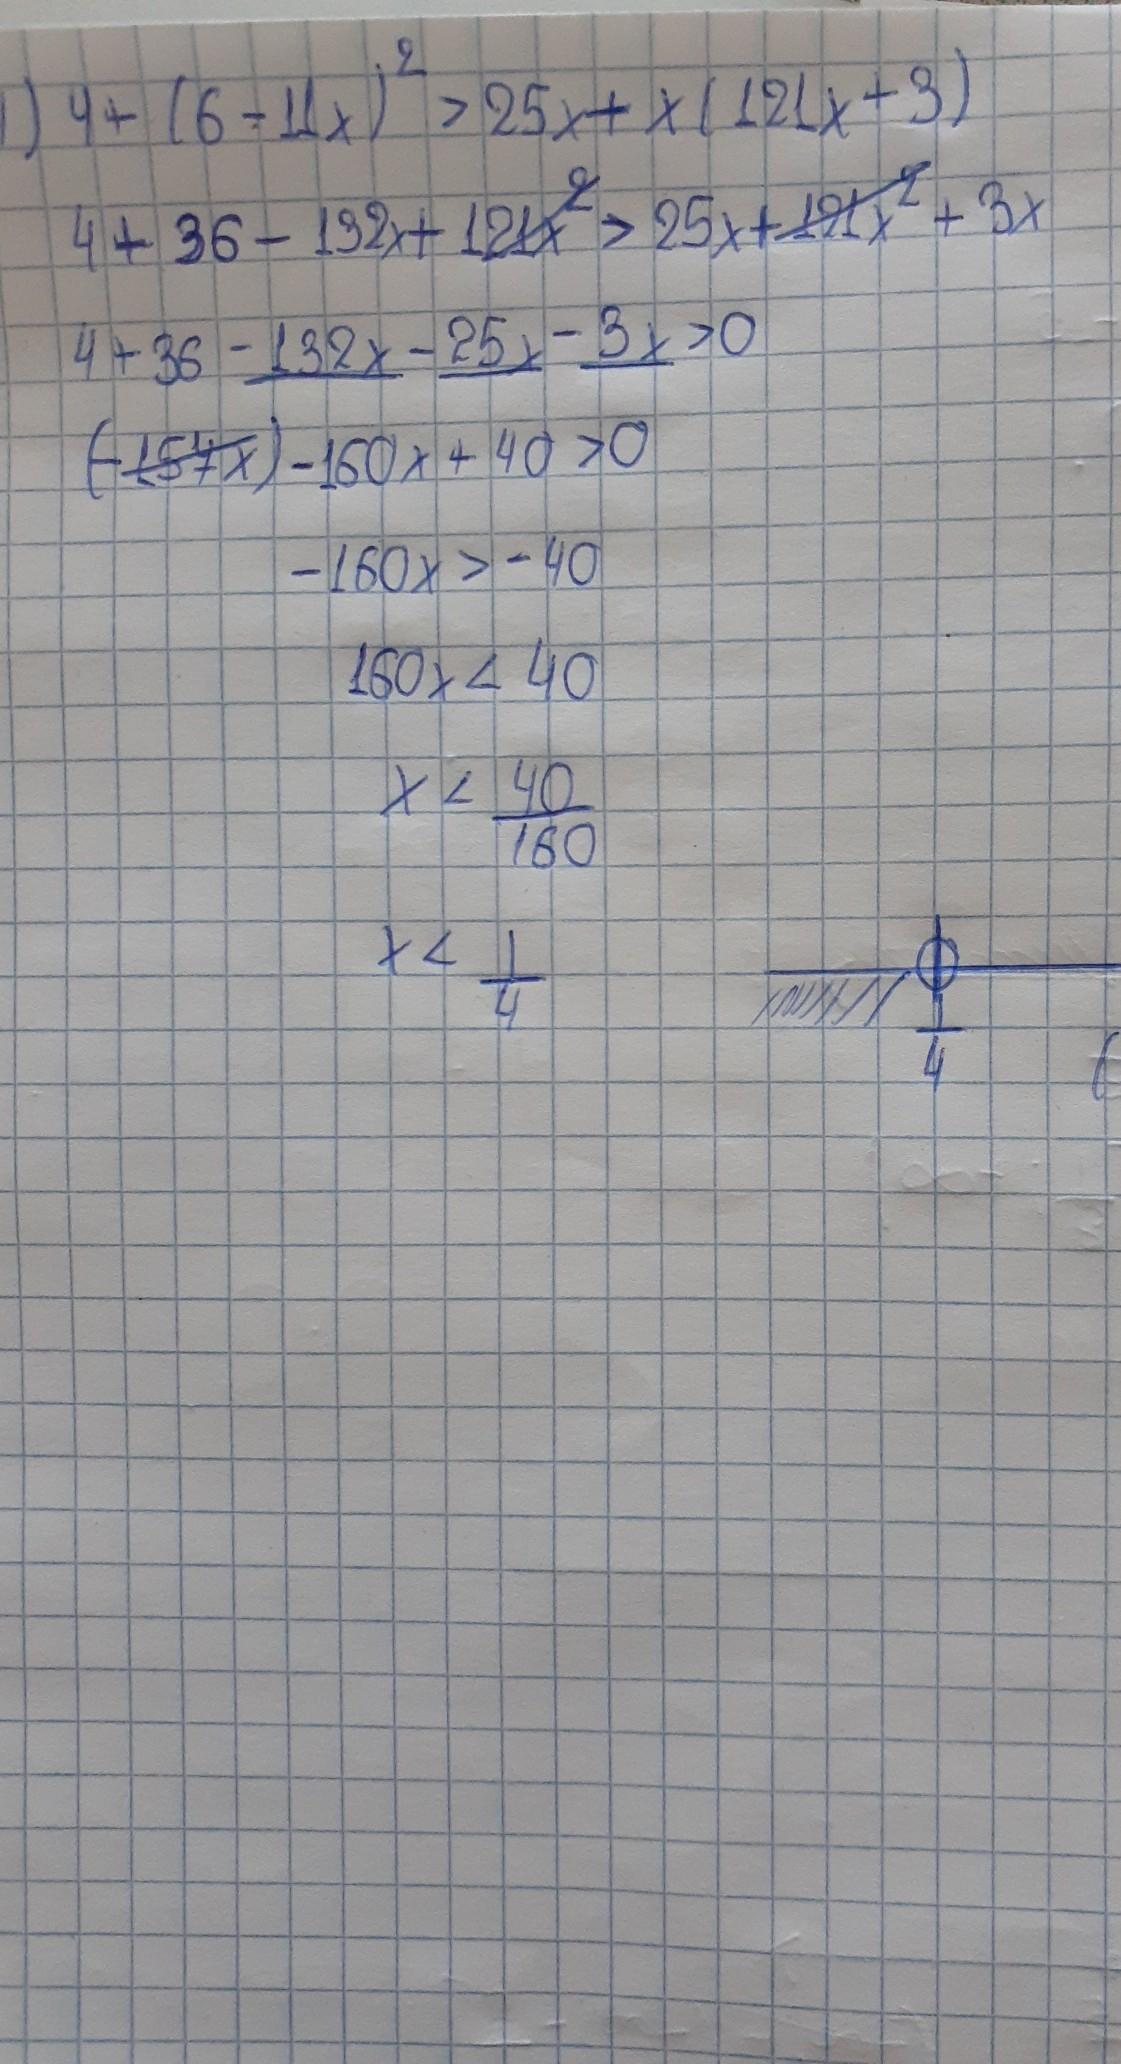 1) 4 + (6 - 11x)² > 25x + x(121x + 3)
4 + 36 - 132x + 121x² > 25x + 121x² + 3x
4 + 36 - 132x - 25x - 3x > 0
(-157x) - 160x + 40 > 0
-160x > -40
160x < 40
x < 40/160
x < 1/4
1/4
(